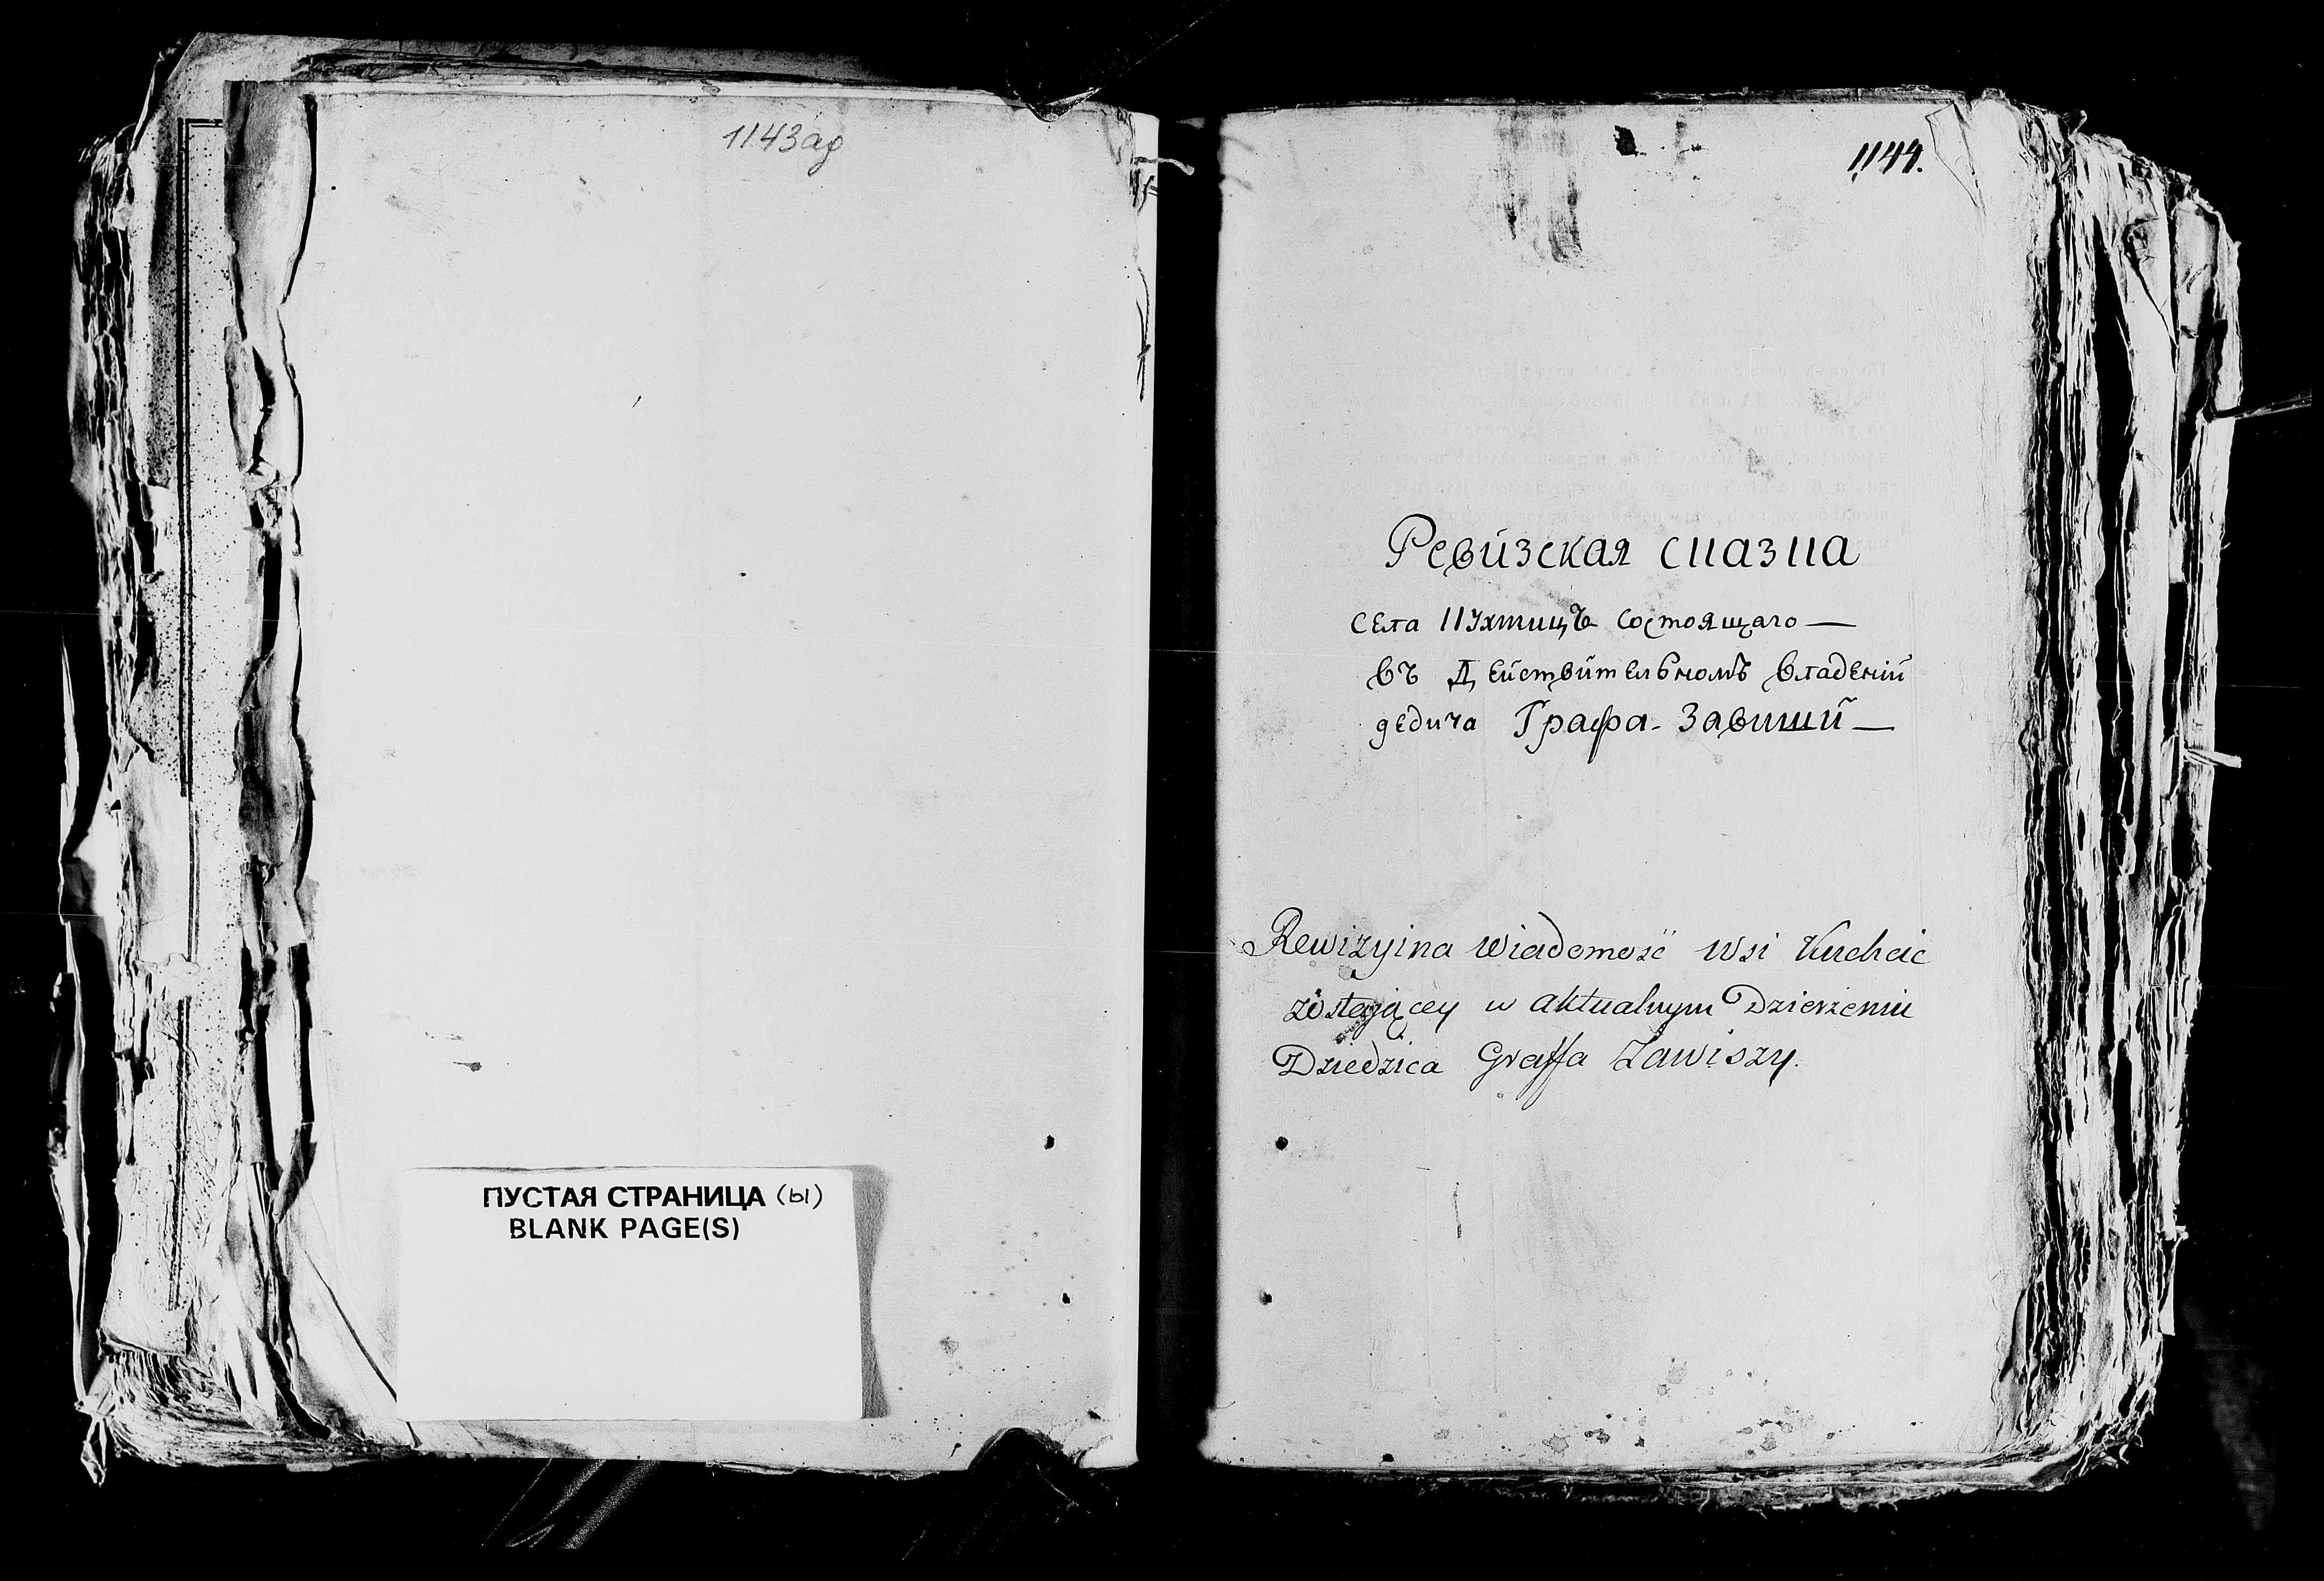 1143аф
1144.
Ревизская сказка
села Кухтицъ состоящаго —
въ Действительномъ владении
дедича Графа Завиши —
Rewizyina wiadomość wsi Kuchcic
zostającey w aktualnym Dzierżeniu
Dziedzica Graffa Zawiszy.
ПУСТАЯ СТРАНИЦА (Ы)
BLANK PAGE(S)